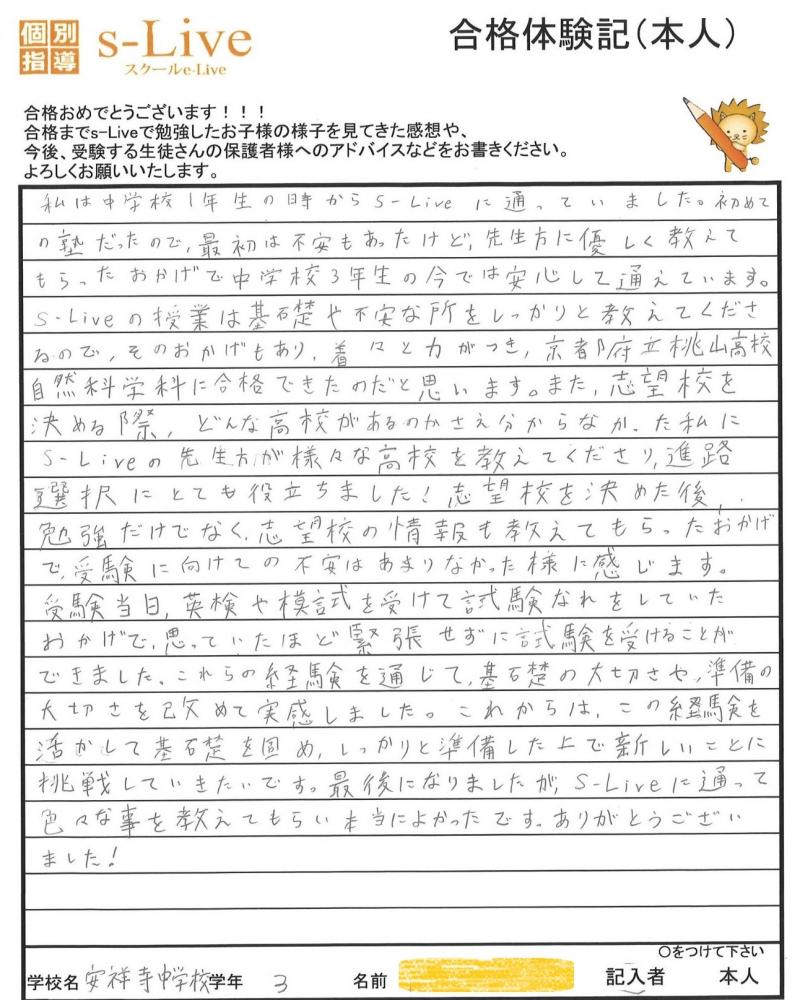 個別指導
s-Live
スクールe-Live
合格体験記(本人)
合格おめでとうございます!!!
合格までs-Liveで勉強したお子様の様子を見てきた感想や、
今後、受験する生徒さんの保護者様へのアドバイスなどをお書きください。
よろしくお願いいたします。
私は中学校1年生の時からS-Liveに通っていました。初めて
の塾だったので、最初は不安もあったけど、先生方に優しく教えて
もらったおかげで中学校3年生の今では安心して通えています。
S-Liveの授業は基礎や不安な所をしっかりと教えてくださ
るので、そのおかげもあり、着々と力がつき、京都府立桃山高校
自然科学科に合格できたのだと思います。また、志望校を
決める際、どんな高校があるのかさえ分からなかった私に
S-Liveの先生方が様々な高校を教えてくださり、進路
選択にとても役立ちました!志望校を決めた後、
勉強だけでなく、志望校の情報も教えてもらったおかげ
で、受験に向けての不安はあまりなかった様に感じます。
受験当日、英検や模試を受けて試験なれをしていた
おかげで、思っていたほど緊張せずに試験を受けることが
できました。これらの経験を通じて、基礎の大切さや、準備の
大切さを改めて実感しました。これからは、この経験を
活かして基礎を固め、しっかりと準備した上で新しいことに
挑戦していきたいです。最後になりましたが、S-Liveに通って
色々な事を教えてもらい本当によかったです。ありがとうござい
ました!
〇をつけて下さい
学校名 安祥寺中学校 学年 3 名前 記入者 本人